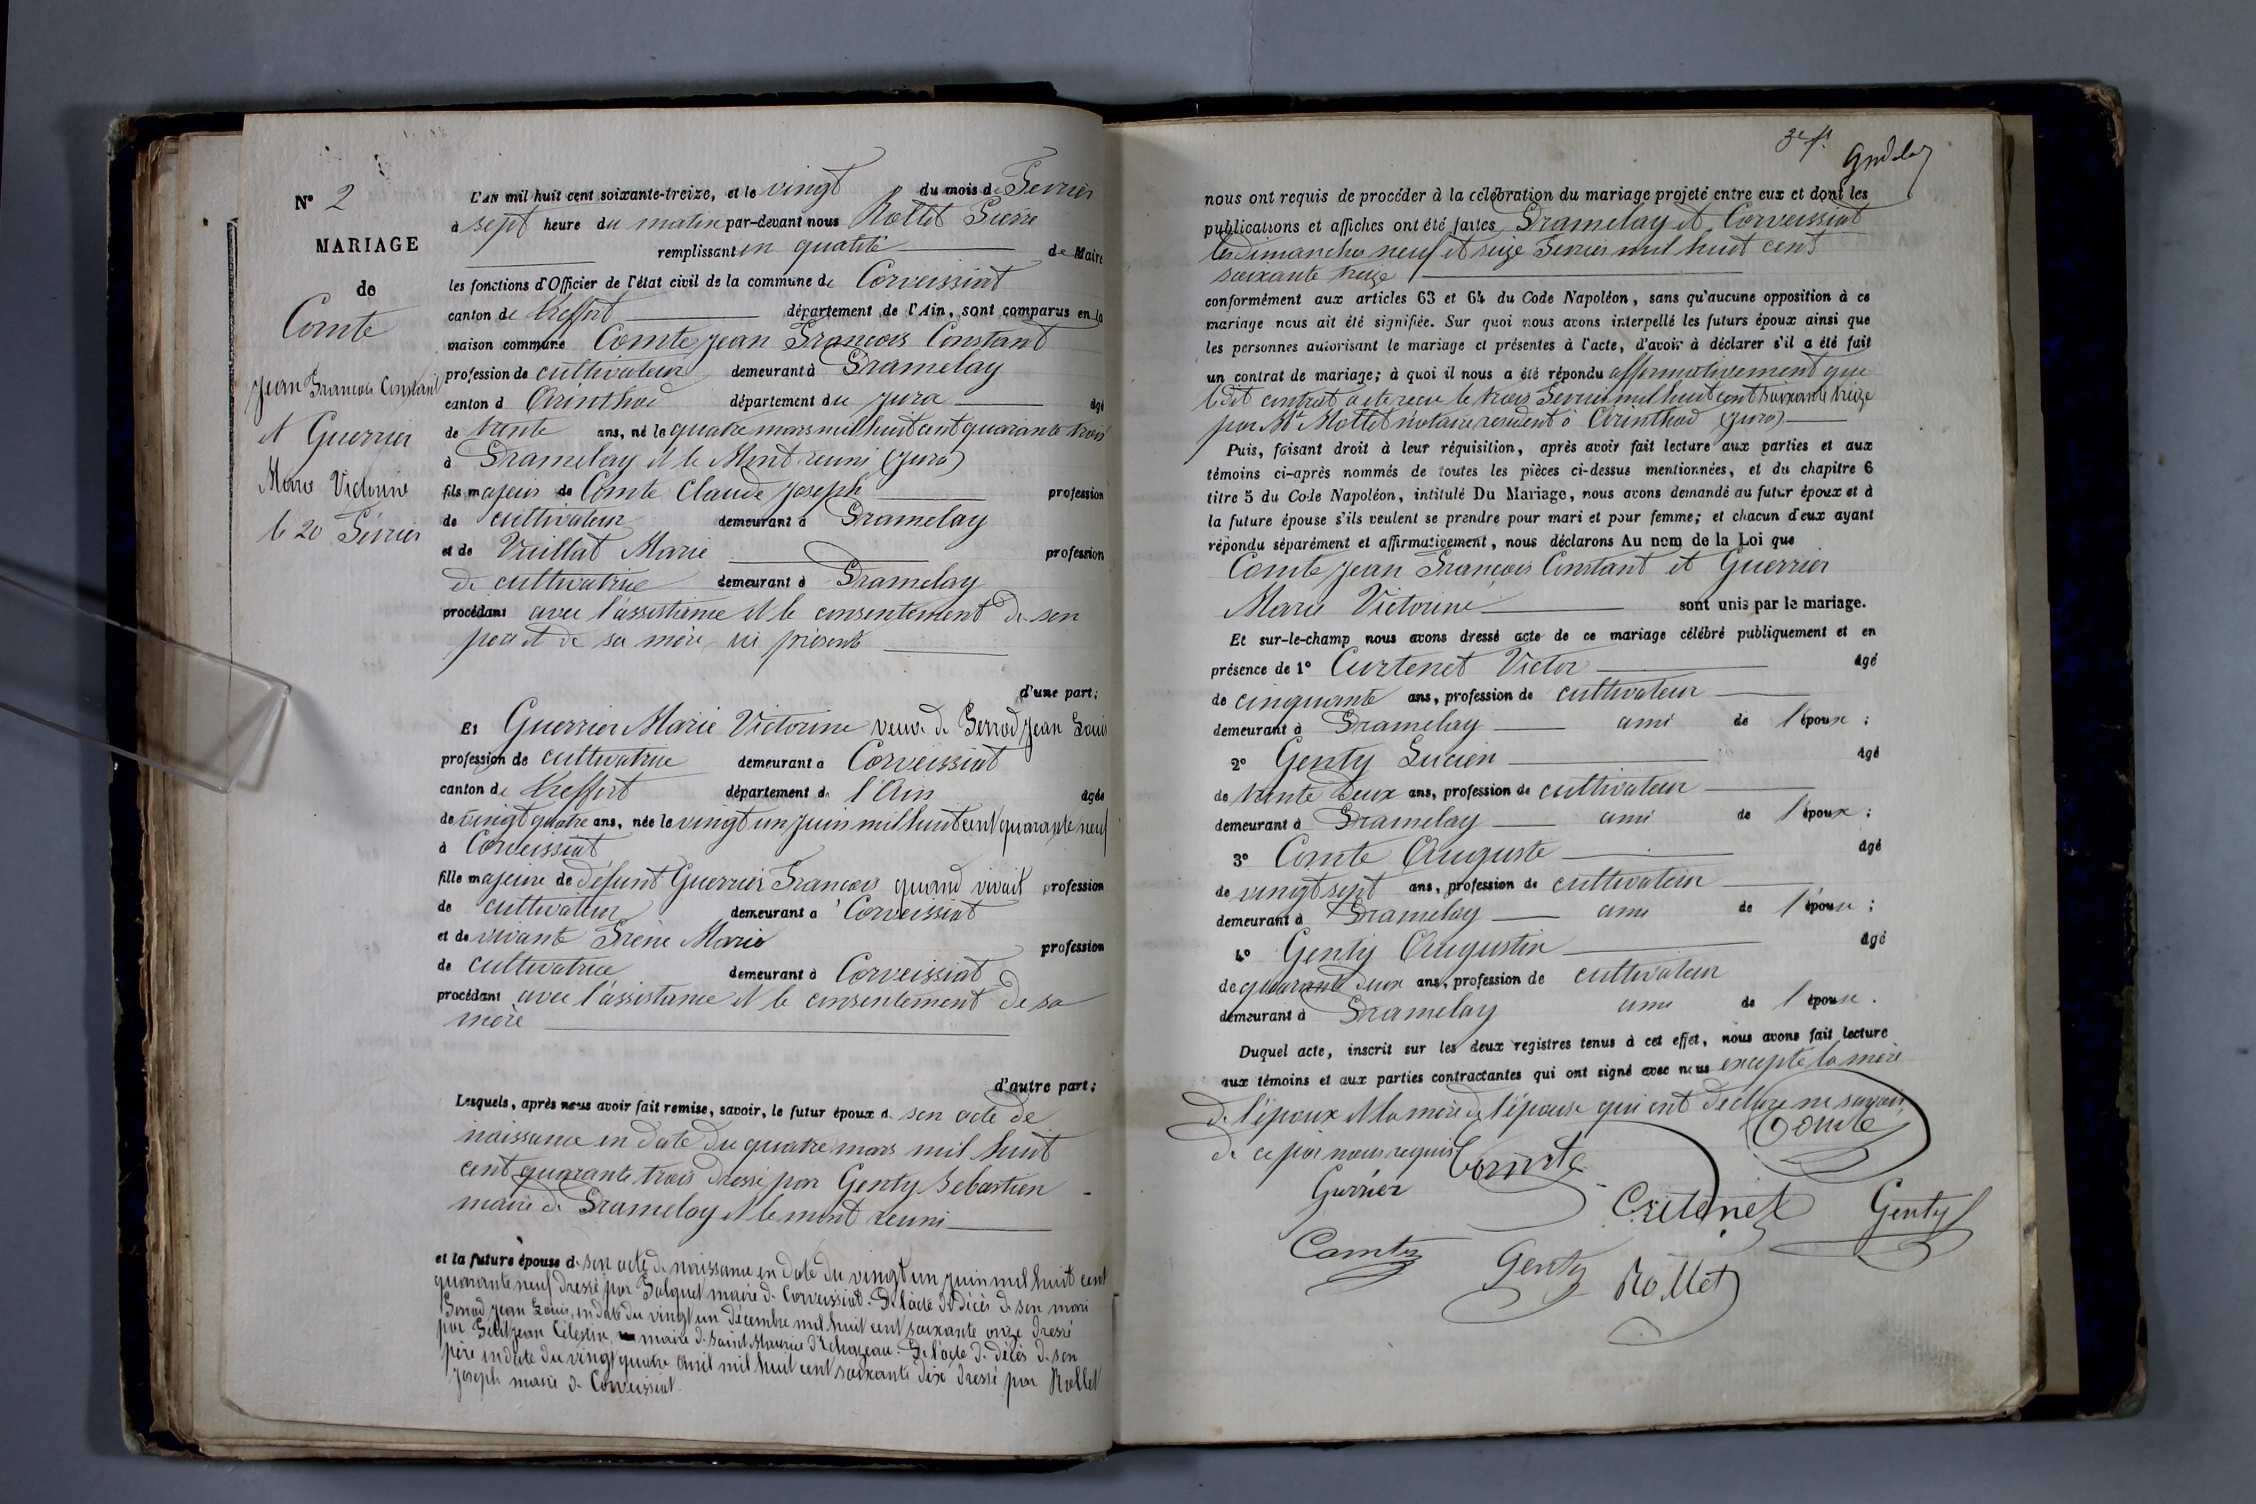 N° 2
MARIAGE
de
Comte
Jean François Constant
et Guerrier
Marie Victorine
le 20 Février
L'AN mil huit cent soixante-treize, et le vingt du mois de Fevrier
à sept heure du matin par-devant nous Rollet Pierre
remplissant en qualité de Maire
les fonctions d'Officier de l'état civil de la commune de Corveissiat
canton de Treffort département de l'Ain, sont comparus en la
maison commune Comte Jean François Constant
profession de cultivateur demeurant à Dramelay
canton d Arinthod département du Jura âgé
de trente ans, né le quatre mars mil huit cent quarante trois
à Dramelay et le Mont reuni (Jura)
fils majeur de Comte Claude Joseph profession
de cultivateur demeurant à Dramelay
et de Vuillat Marie profession
de cultivatrice demeurant à Dramelay
procédant avec l'assistance et le consentement de son
pere et de sa mère, ici présents
d'une part;
Et Guerrier Marie Victorine veuve de Perrod Jean Louis
profession de cultivatrice demeurant à Corveissiat
canton de Treffort département de l'Ain âgée
de vingt quatre ans, née le vingt un juin mil huit cent quarante neuf
à Corveissiat
fille majeure de défunt Guerrier François quand vivait profession
de cultivateur demeurant à Corveissiat
et de vivante Marie profession
de cultivatrice demeurant à Corveissiat
procédant avec l'assistance et le consentement de sa
mère
d'autre part;
Lesquels, après nous avoir fait remise, savoir, le futur époux d son acte de
naissance en date du quatre mars mil huit
cent quarante trois dressé par Genty Sebastien
maire de Dramelay et le mont reuni
et la future épouse d son acte de naissance en date du vingt un juin mil huit cent
quarante neuf dressé par maire de Corveissiat. De l'acte de décès de son mari
Perrod Jean Louis, en date du vingt un décembre mil huit cent soixante onze dressé
par Jean Célestin maire de Saint Maurice d'Echazeau. De l'acte de décès de son
père en date du vingt quatre avril mil huit cent soixante dix dressé par Rollet
Joseph maire de Corveissiat.
3e f.t
nous ont requis de procéder à la célébration du mariage projeté entre eux et dont les
publications et affiches ont été faites Dramelay et Corveissiat
les dimanches neuf et seize Fevrier mil huit cent
soixante treize
conformément aux articles 63 et 64 du Code Napoléon, sans qu'aucune opposition à ce
mariage nous ait été signifiée. Sur quoi nous avons interpellé les futurs époux ainsi que
les personnes autorisant le mariage et présentes à l'acte, d'avoir à déclarer s'il a été fait
un contrat de mariage; à quoi il nous a été répondu affirmativement que
ledit contrat a ete recu le trois Fevrier mil huit cent soixante treize
par Me Mottet notaire resident à Arinthod (Jura)
Puis, faisant droit à leur réquisition, après avoir fait lecture aux parties et aux
témoins ci-après nommés de toutes les pièces ci-dessus mentionnées, et du chapitre 6
titre 5 du Code Napoléon, intitulé Du Mariage, nous avons demandé au futur époux et à
la future épouse s'ils veulent se prendre pour mari et pour femme; et chacun d'eux ayant
répondu séparément et affirmativement, nous déclarons Au nom de la Loi que
Comte Jean François Constant et Guerrier
Marie Victorine sont unis par le mariage.
Et sur-le-champ nous avons dressé acte de ce mariage célébré publiquement et en
présence de 1° Curtenet Victor âgé
de cinquante ans, profession de cultivateur
demeurant à Dramelay ami de l'époux ;
2° Genty Lucien âgé
de trente deux ans, profession de cultivateur
demeurant à Dramelay ami de l'époux ;
3° Comte Auguste âgé
de vingt sept ans, profession de cultivateur
demeurant à Dramelay ami de l'époux ;
4° Genty Augustin âgé
de quarante deux ans, profession de cultivateur
demeurant à Dramelay ami de l'époux.
Duquel acte, inscrit sur les deux registres tenus à cet effet, nous avons fait lecture
aux témoins et aux parties contractantes qui ont signé avec nous excepté la mère
de l'époux et la mère de l'épouse qui ont déclaré ne savoir,
de ce par nous requis Comte Comte
Gurrier
Curtenet Genty
Comte Genty Rollet